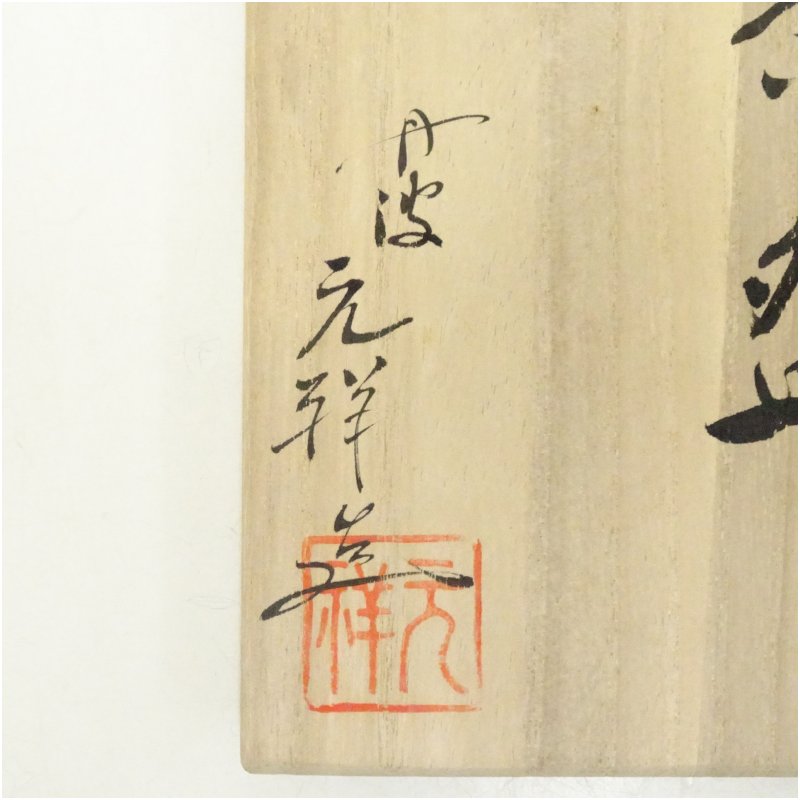 丹波
元祥造
元祥